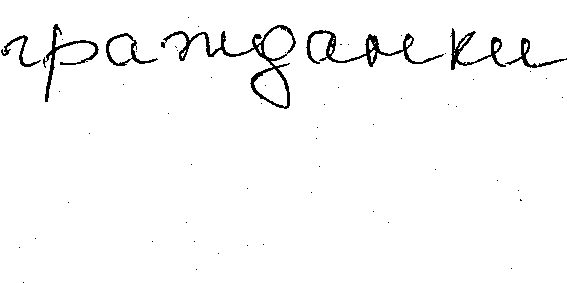 гражданки